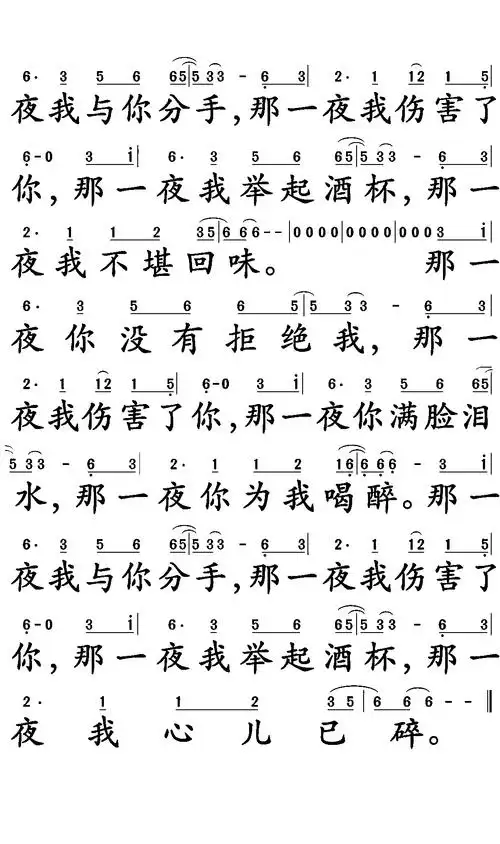 6· 3 5 6 65 5 33 - 6 3 2· 1 12 1 5
夜我与你分手,那一夜我伤害了
6-0 3 i 6· 3 5 6 65 5 33 - 6 3
你,那一夜我举起酒杯,那一
2· 1 1 2 35 6 66-- 0000 0000 000 3 i
夜我不堪回味。 那一
6· 3 5 6 6 5 5 3 3 - 6 3
夜你没有拒绝我,那一
2· 1 12 1 5 6-0 3 i 6· 3 5 6 65
夜我伤害了你,那一夜你满脸泪
5 33 - 6 3 2· 1 1 2 16 6 66 - 3 i
水,那一夜你为我喝醉。那一
6· 3 5 6 65 5 33 - 6 3 2· 1 12 1 5
夜我与你分手,那一夜我伤害了
6-0 3 i 6· 3 5 6 65 5 33 - 6 3
你,那一夜我举起酒杯,那一
2· 1 1 2 3 5 6 6 6 - -
夜我心儿已碎。